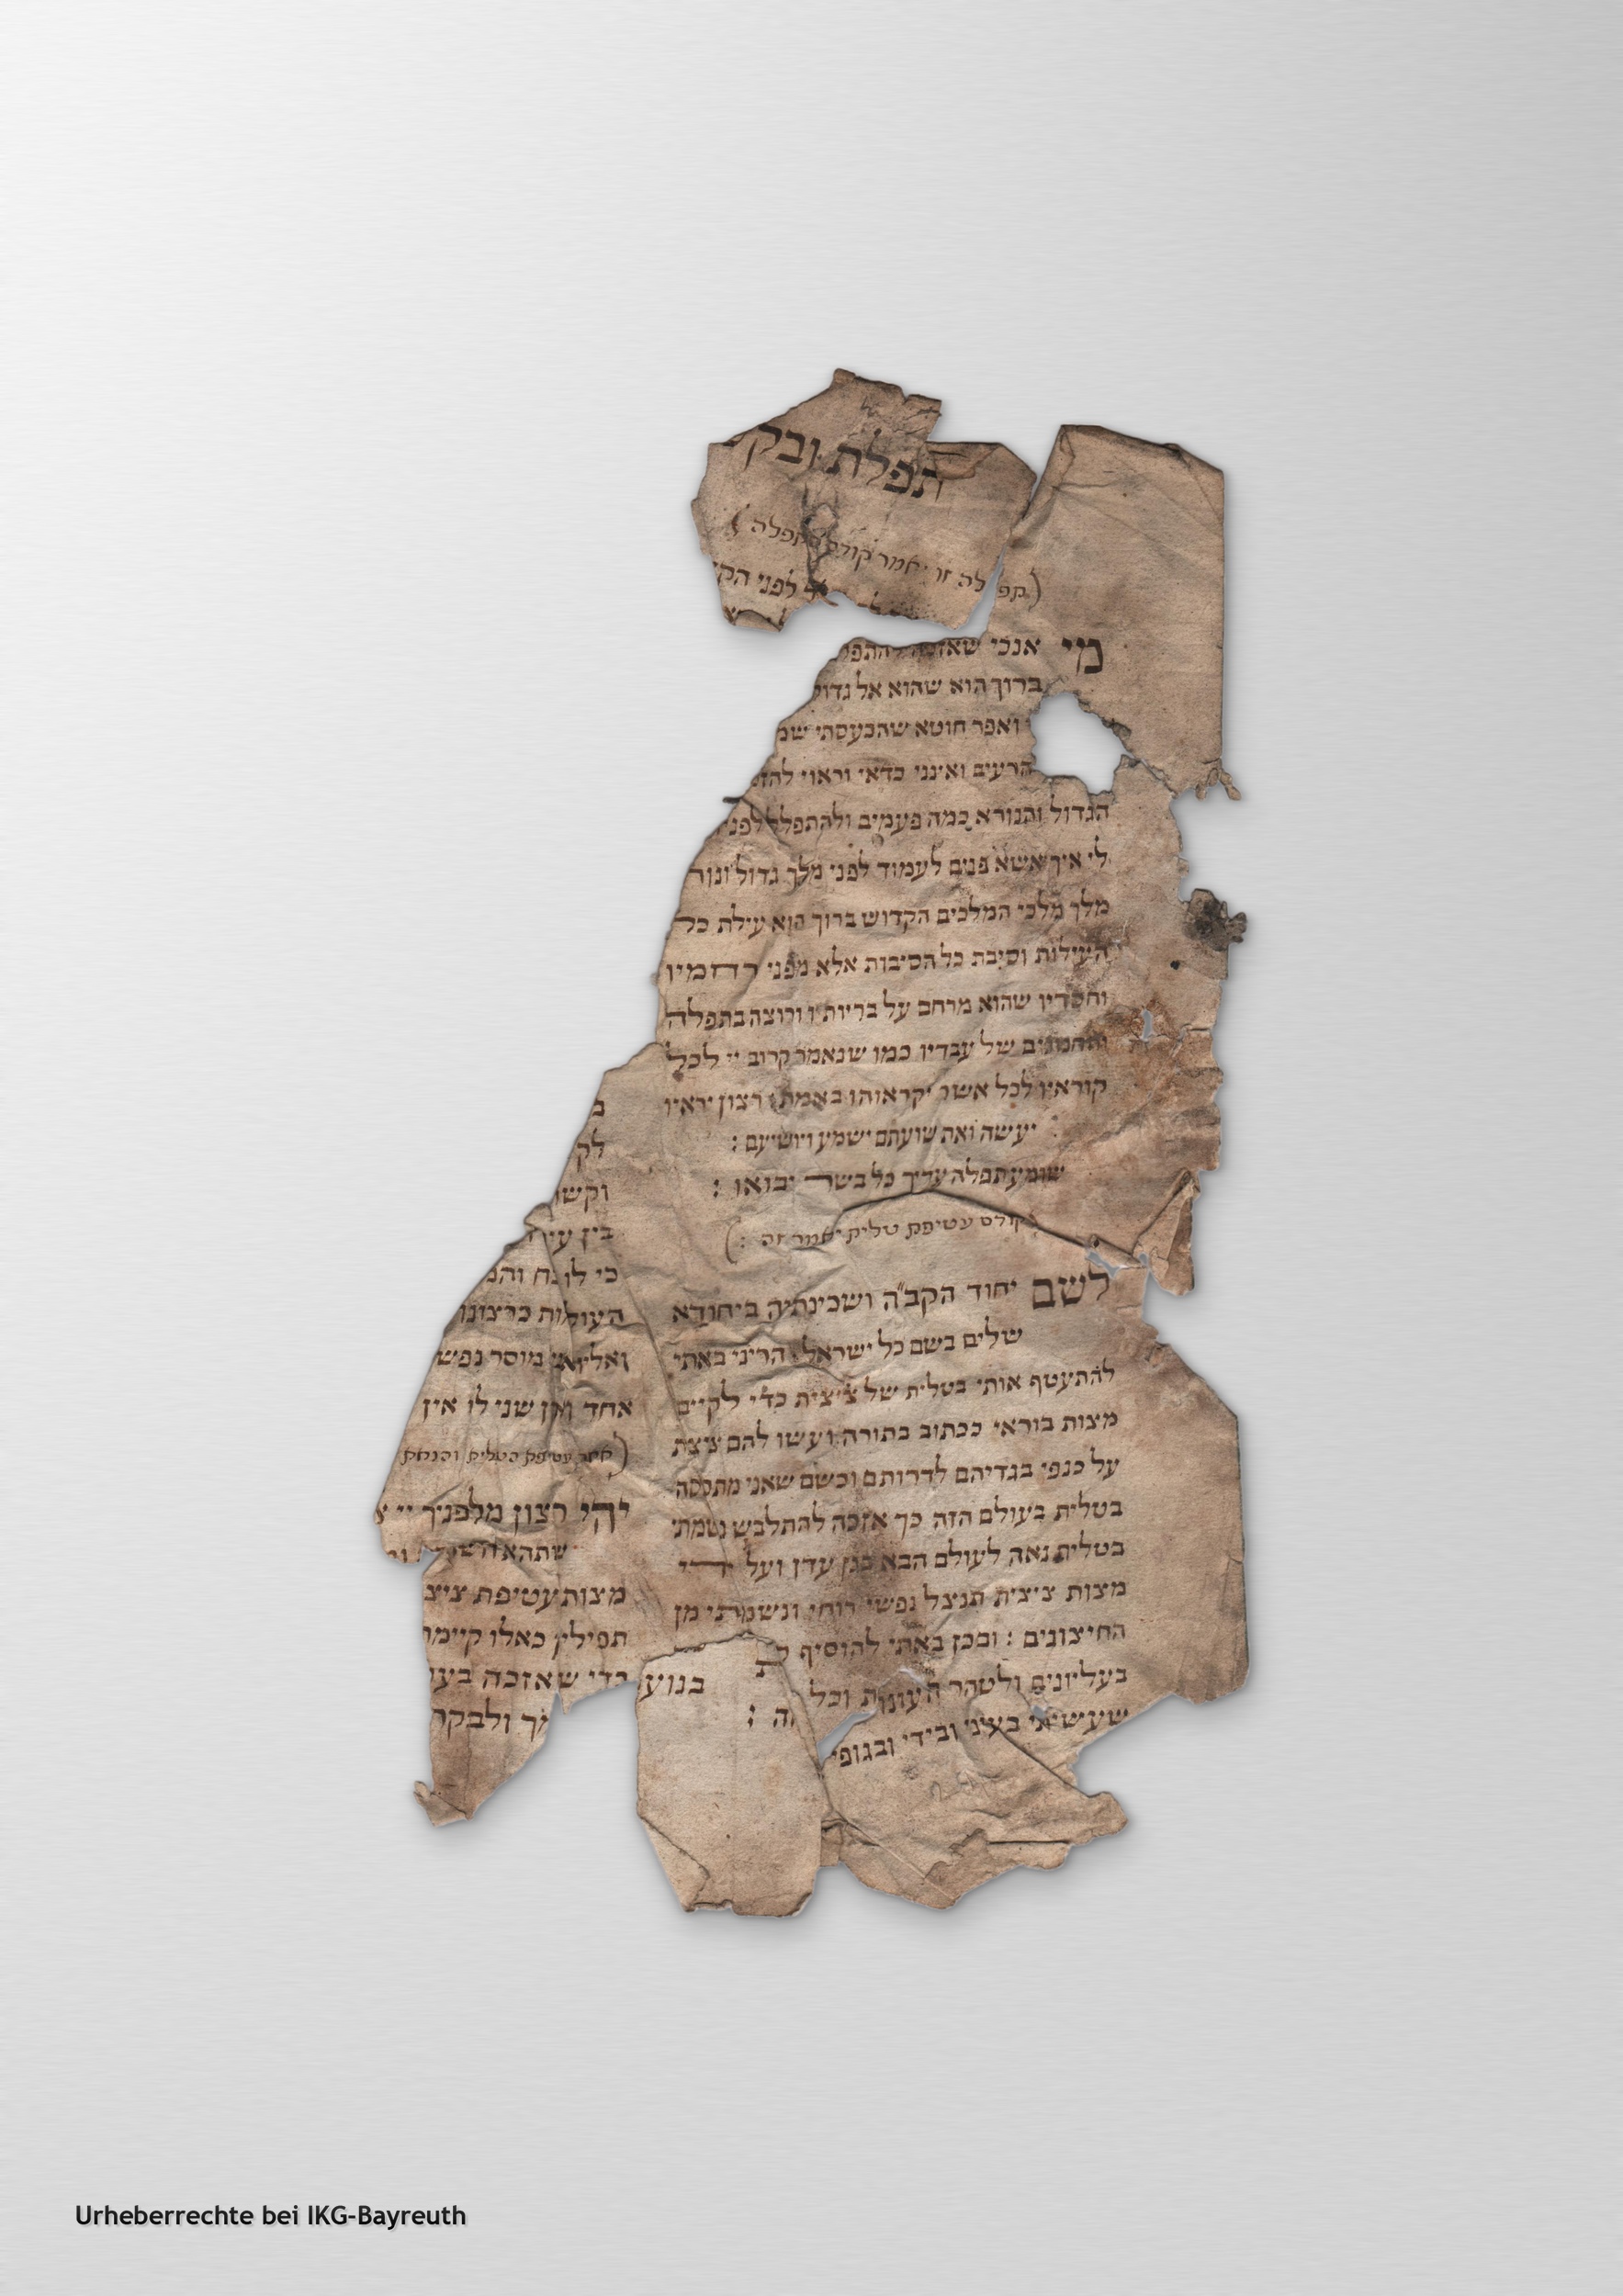 תפלת ובק
(תפלה זו יאמר קודם התפלה)
לפני הק
מי אנכי שאזכה להתפ
ברוך הוא שהוא אל גדול
ואפר חוטא שהכעסתי שמ
הרעים ואינני כדאי וראוי להז
הגדול והנורא כמה פעמים ולהתפלל לפני
לי איך אשא פנים לעמוד לפני מלך גדול ונור
מלך מלכי המלכים הקדוש ברוך הוא עילת כל
העילות וסיבת כל הסיבות אלא מפני רחמיו
וחסדיו שהוא מרחם על בריותיו ורוצה בתפלה
ותחנונים של עבדיו כמו שנאמר קרוב יי לכל
קוראיו לכל אשר יקראוהו באמת רצון יראיו
יעשה ואת שועתם ישמע ויושיעם :
שומע תפלה עדיך כל בשר יבואו :
(קודם עטיפת טלית יאמר זה :)
לשם יחוד הקב״ה ושכינתיה ביחודא
שלים בשם כל ישראל הריני באתי
להתעטף אותי בטלית של ציצית כדי לקיים
מצות בוראי ככתוב בתורה ועשו להם ציצת
על כנפי בגדיהם לדרותם וכשם שאני מתכסה
בטלית בעולם הזה כך אזכה להתלבש נשמתי
בטלית נאה לעולם הבא בגן עדן ועל ידי
מצות ציצית תנצל נפשי רוחי ונשמתי מן
החיצונים : ובכן באתי להוסיף
בעליונים ולטהר העונות וכל
שעשיתי בעיני ובידי ובגופי
ה :
לק
וקשו
בין עי
כי לו
העולות כרצונו
ואליו אני מוסר נפש
אחד ואין שני לו אין
(אחר עטיפת הטלית והנחת
יהי רצון מלפניך יי
שתהא
מצות עטיפת ציצ
תפילין כאלו קיימת
כדי שאזכה בעו
ולבקר
בנוע
Urheberrechte bei IKG-Bayreuth